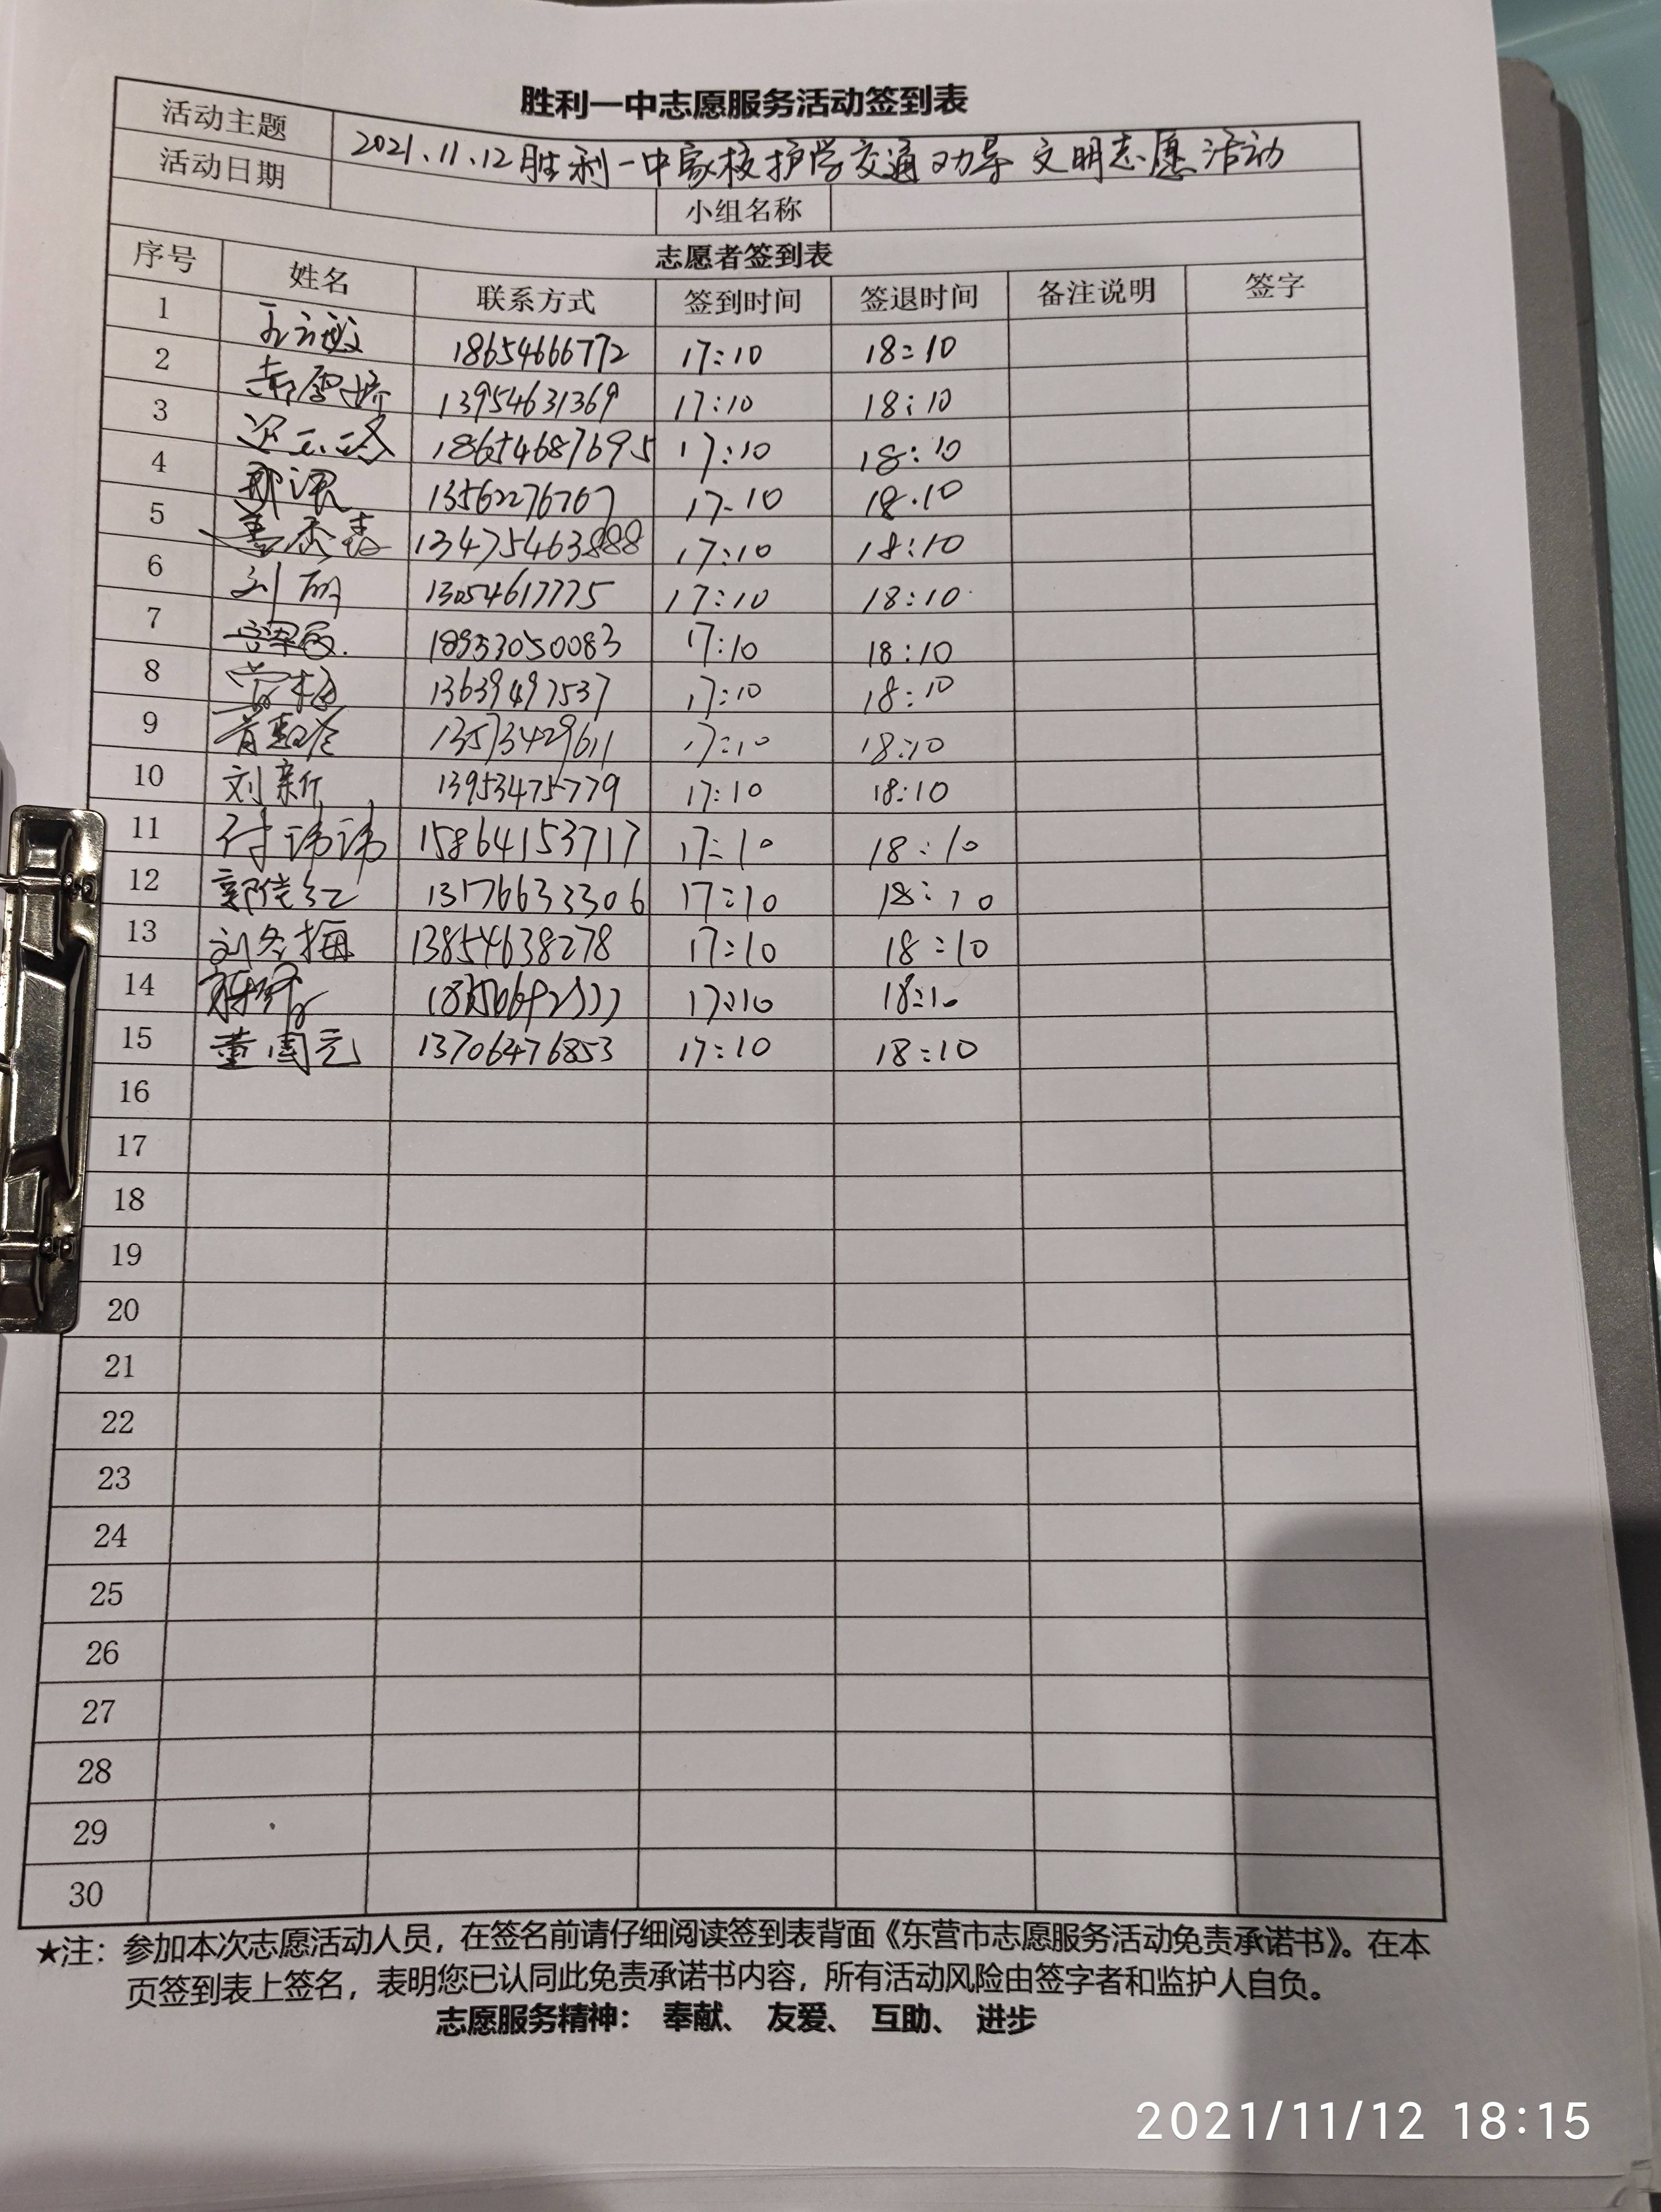 胜利一中志愿服务活动签到表
活动主题 2021.11.12胜利一中家校护学交通劝导文明志愿活动
活动日期 小组名称
志愿者签到表
序号 姓名 联系方式 签到时间 签退时间 备注说明 签字
1 18654666772 17:10 18:10
2 13954631369 17:10 18:10
3 18654687695 17:10 18:10
4 13562276767 17:10 18:10
5 13475463888 17:10 18:10
6 13054617775 17:10 18:10
7 18953050083 17:10 18:10
8 13639497537 17:10 18:10
9 13573429611 17:10 18:10
10 刘新 13953475779 17:10 18:10
11 付讳讳 15864153717 17:10 18:10
12 13176633306 17:10 18:10
13 刘冬梅 13854638278 17:10 18:10
14 17:10 18:10
15 董国元 13706476853 17:10 18:10
16
17
18
19
20
21
22
23
24
25
26
27
28
29
30
★注：参加本次志愿活动人员，在签名前请仔细阅读签到表背面《东营市志愿服务活动免责承诺书》。在本
页签到表上签名，表明您已认同此免责承诺书内容，所有活动风险由签字者和监护人自负。
志愿服务精神： 奉献、 友爱、 互助、 进步
2021/11/12 18:15